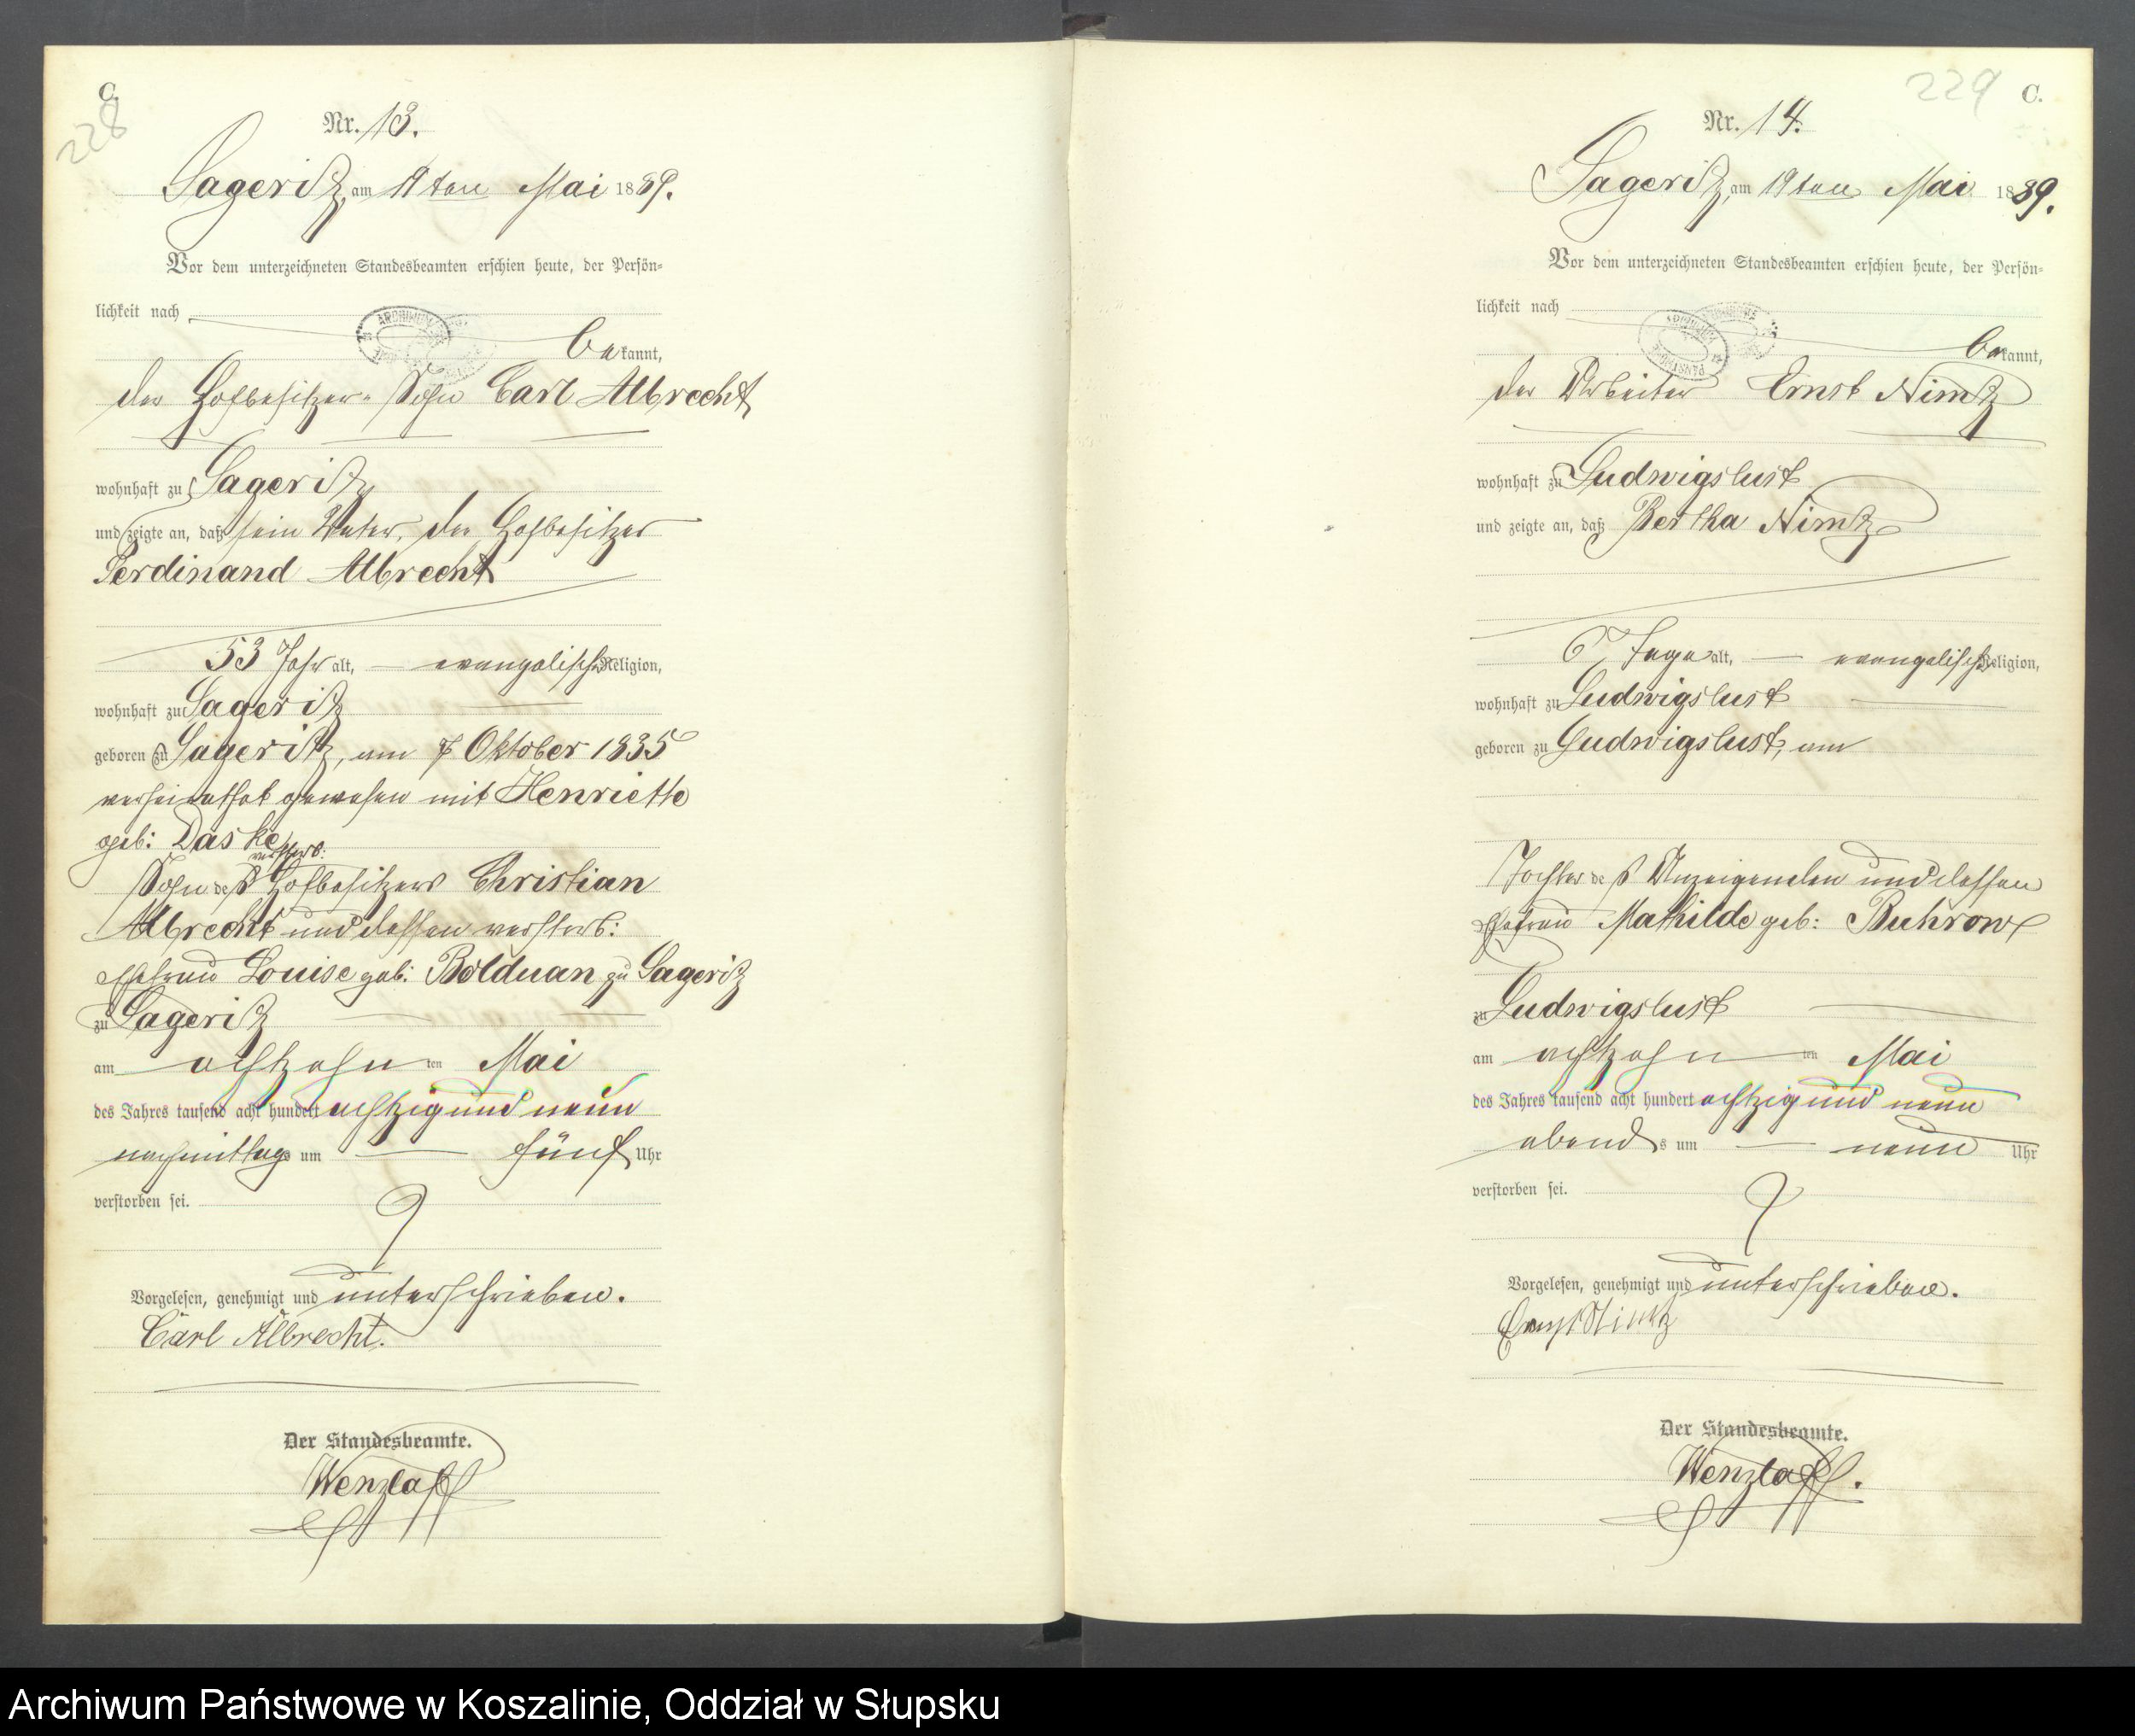 C.
228
Nr. 13.
Sageritz, am 19ten Mai 1889.
Vor dem unterzeichneten Standesbeamten erschien heute, der Persön-
lichkeit nach
bekannt,
der Hofbesitzer-Sohn Carl Albrecht
wohnhaft zu Sageritz
und zeigte an, daß sein Vater, der Hofbesitzer
Ferdinand Albrecht
53 Jahr alt, evangelischer Religion,
wohnhaft zu Sageritz
geboren zu Sageritz, am 7 Oktober 1835
verheirathet gewesen mit Henriette
geb: Daske
verstorb:
Sohn des Hofbesitzers Christian
Albrecht und dessen verstorb:
Ehefrau Louise geb: Bolduan zu Sageritz
zu Sageritz
am achtzehnten Mai
des Jahres tausend acht hundert achtzig und neun
nachmittags um fünf Uhr
verstorben sei.
Vorgelesen, genehmigt und unterschrieben.
Carl Albrecht.
Der Standesbeamte.
Wenzlaff
229 C.
Nr. 14.
Sageritz, am 19ten Mai 1889.
Vor dem unterzeichneten Standesbeamten erschien heute, der Persön-
lichkeit nach
bekannt,
der Arbeiter Ernst Nimtz
wohnhaft zu Ludwigslust
und zeigte an, daß Bertha Nimtz
6 Tage alt, evangelischer Religion,
wohnhaft zu Ludwigslust
geboren zu Ludwigslust, am
Tochter des Anzeigenden und dessen
Ehefrau Mathilde geb: Buhrow
zu Ludwigslust
am achtzehnten Mai
des Jahres tausend acht hundert achtzig und neun
abends um neun Uhr
verstorben sei.
Vorgelesen, genehmigt und unterschrieben.
Ernst Nimtz
Der Standesbeamte.
Wenzlaff.
Archiwum Państwowe w Koszalinie, Oddział w Słupsku